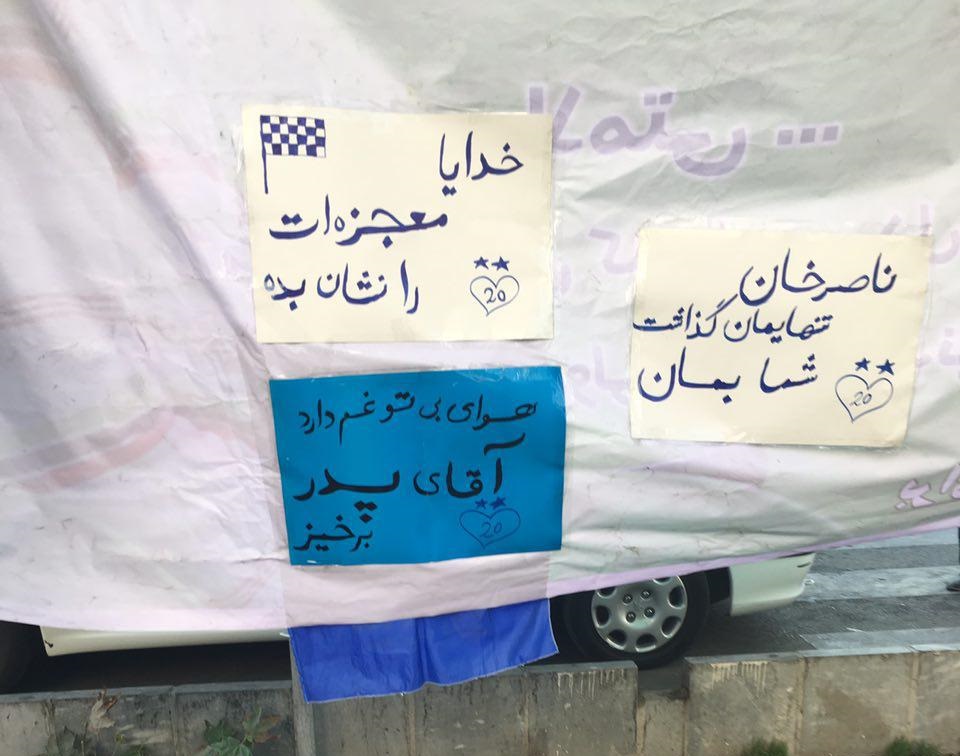 خدایا
معجزه‌ات
را نشان بده
20
ناصرخان
تنهایمان گذاشت
شما بمان
20
هوای بی تو غم دارد
آقای پدر
برخیز
20